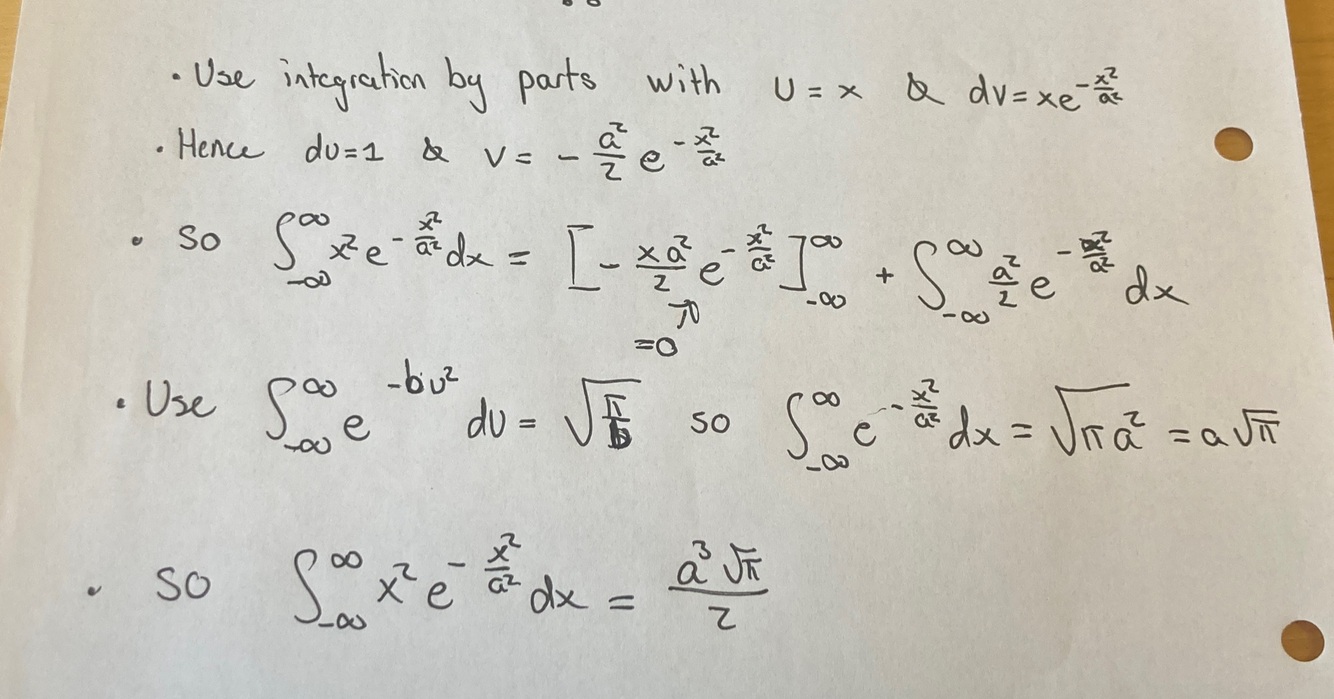 · Use integration by parts with u = x & dv = xe^{-\frac{x^2}{a^2}}
· Hence du=1 & v = -\frac{a^2}{2} e^{-\frac{x^2}{a^2}}
· So \int_{-\infty}^{\infty} x^2 e^{-\frac{x^2}{a^2}} dx = \left[ -\frac{xa^2}{2} e^{-\frac{x^2}{a^2}} \right]_{-\infty}^{\infty} + \int_{-\infty}^{\infty} \frac{a^2}{2} e^{-\frac{x^2}{a^2}} dx
↗
=0
· Use \int_{-\infty}^{\infty} e^{-bu^2} du = \sqrt{\frac{\pi}{b}} so \int_{-\infty}^{\infty} e^{-\frac{x^2}{a^2}} dx = \sqrt{\pi a^2} = a\sqrt{\pi}
· So \int_{-\infty}^{\infty} x^2 e^{-\frac{x^2}{a^2}} dx = \frac{a^3 \sqrt{\pi}}{2}